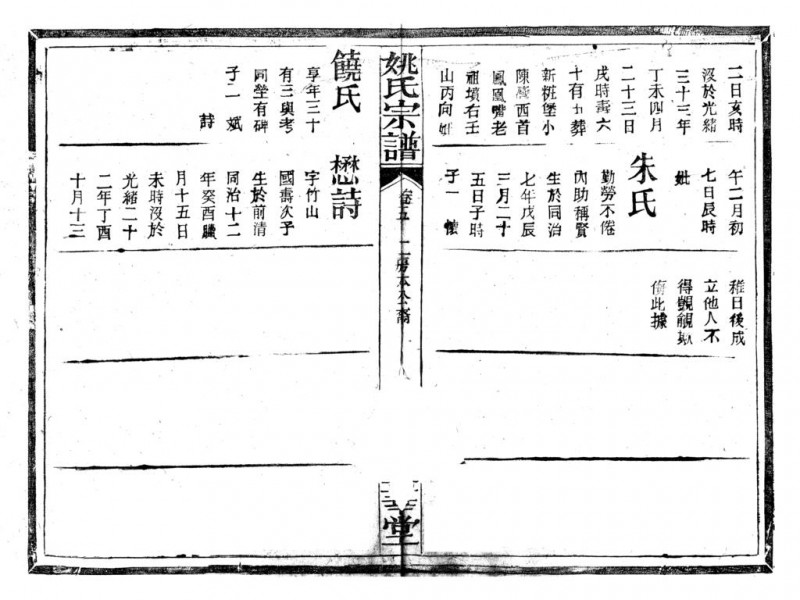 二日亥時
沒於光緒
三十三年
丁未四月
二十三日
戌時壽六
十有九葬
新粧堡小
陳灣西首
鳳凰嘴老
祖墳右壬
山丙向妣
午二月初
七日辰時
妣
朱氏
勤勞不倦
內助稱賢
生於同治
七年戊辰
三月二十
五日子時
子一 懷
稚日後成
立他人不
得覬覦
此據
姚氏宗譜
卷五
二房
堂
饒氏
享年三十
有三與考
同塋有碑
子二 斌
詩
懋詩
字竹山
國壽次子
生於前清
同治十二
年癸酉臘
月十五日
未時沒於
光緒二十
二年丁酉
十月十三